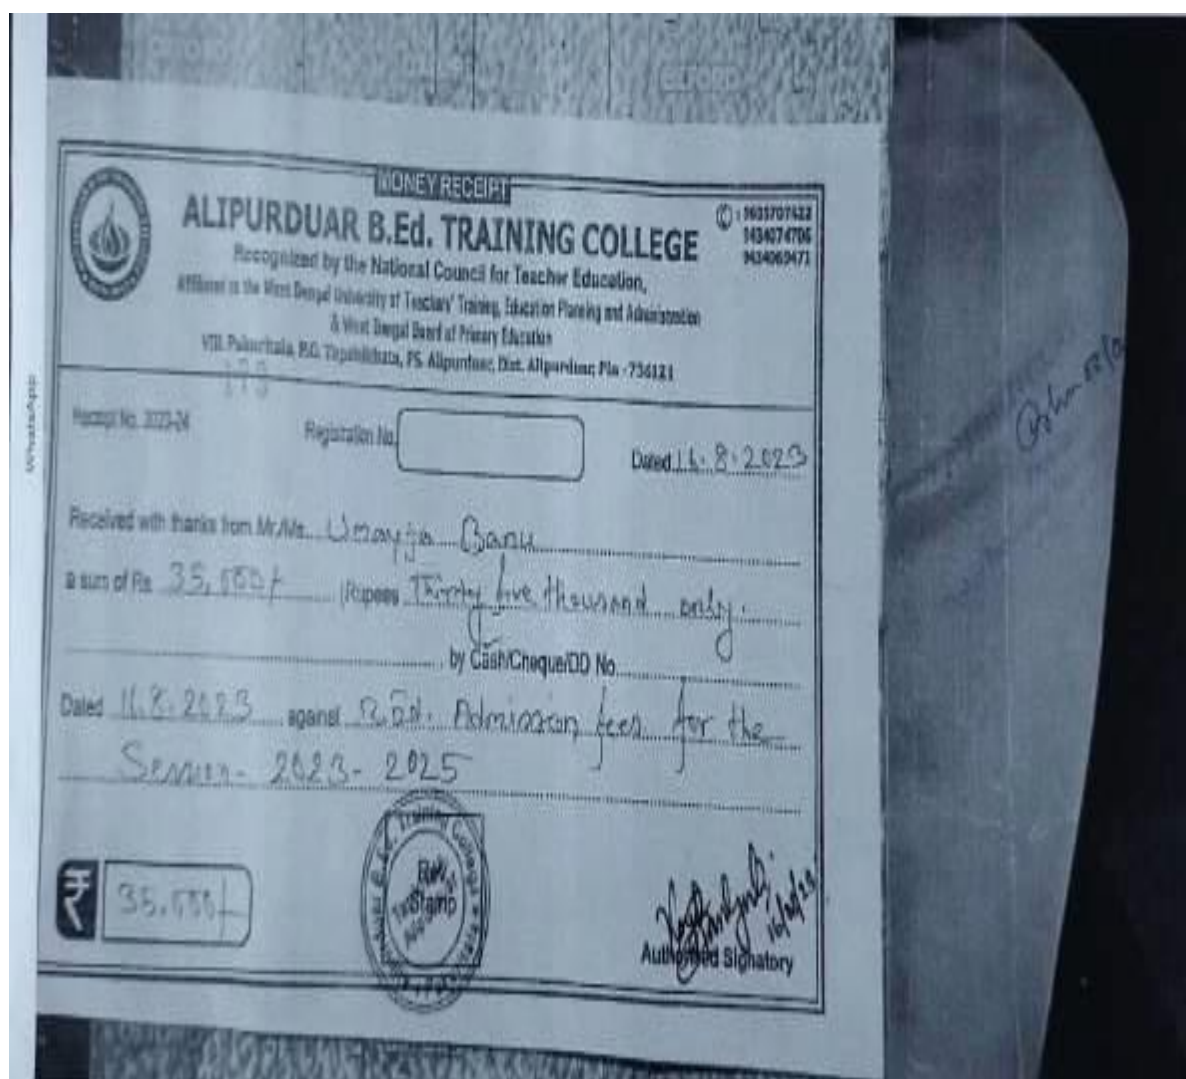 MONEY RECEIPT
ALIPURDUAR B.Ed. TRAINING COLLEGE
Recognized by the National Council for Teacher Education,
Affiliated to the West Bengal University of Teachers' Training, Education Planning and Administration
& West Bengal Board of Primary Education
P.O. Tapsikhata, P.S. Alipurduar, Dist. Alipurduar, Pin - 736121
9434069471
173
Receipt No. 2023-24
Registration No.
Dated 16.8.2023
Received with thanks from Mr./Ms. Banu
a sum of Rs. 35,000/- (Rupees Thirty five thousand only.
by Cash/Cheque/DD No.
Dated 16.8.2023 against B.Ed. Admission fees for the
Session - 2023-2025
₹ 35,000/-
Training College
Stamp
16/08/23
Authorised Signatory
WhatsApp